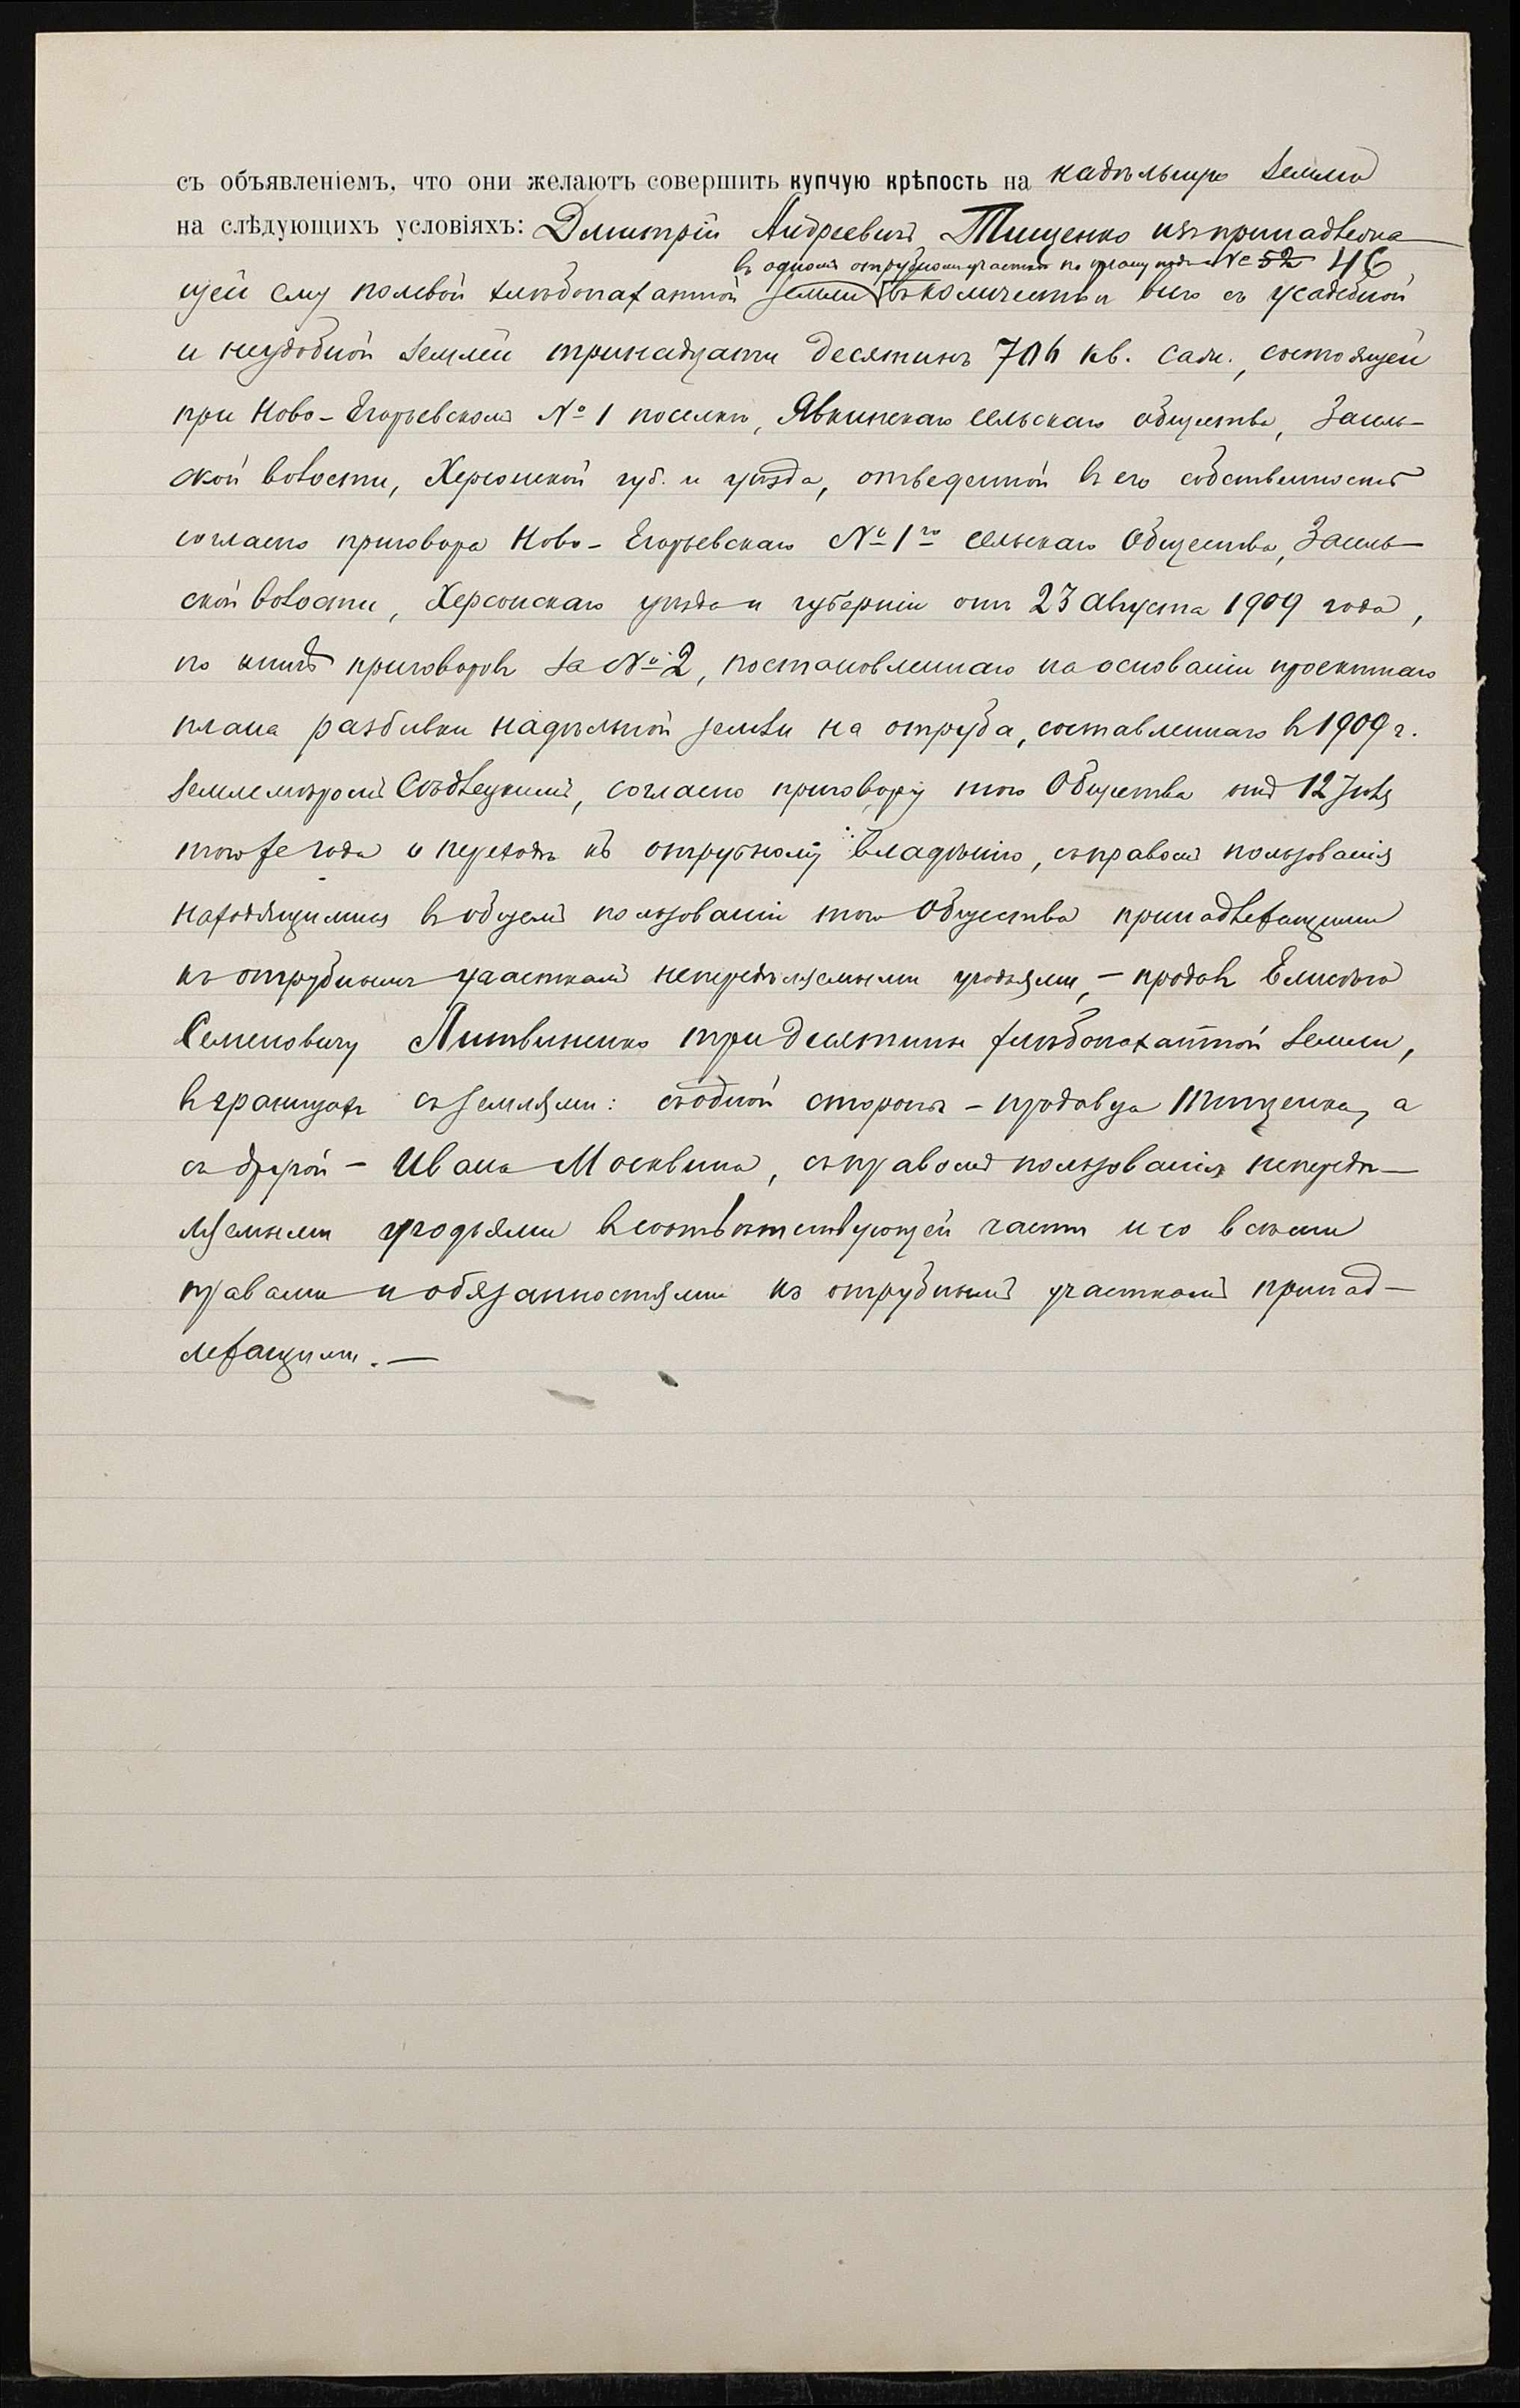 съ объявленіемъ, что они желаютъ совершить купчую крѣпость на надѣльную землю
на слѣдующихъ условіяхъ: Дмитрій Андреевичъ Тищенко изъ принадлежа-
въ одномъ отрубномъ участкѣ по плану подъ № 52 46
щей ему полевой хлѣбопахатной земли въ количествѣ съ усадебной
и неудобной землей тринадцати десятинъ 706 кв. саж., состоящей
при Ново-Егорьевскомъ № 1 поселкѣ, Явкинскаго сельскаго общества, Засель-
ской волости, Херсонской губ. и уѣзда, отведенной въ его собственность
согласно приговора Ново-Егорьевскаго № 1го сельскаго Общества, Засель-
ской волости, Херсонскаго уѣзда и губерніи отъ 23 Августа 1909 года,
по книгѣ приговоровъ за № 2, постановленнаго на основаніи проектнаго
плана разбивки надѣльной земли на отруба, составленнаго въ 1909 г.
землемѣромъ согласно приговору того Общества отъ 12 Іюля
того же года о переходѣ къ отрубному владѣнію, съ правомъ пользованія
находящимися въ общемъ пользованіи того Общества принадлежащими
къ отрубнымъ участкамъ непередѣляемыми угодьями, - продалъ Елисею
Семеновичу Литвиненко три десятины хлѣбопахатной земли,
въ границахъ съ землями: съ одной стороны - продавца Тищенка, а
съ другой - Ивана Москвина, съ правомъ пользованія непередѣ-
ляемыми угодьями въ соотвѣтствующей части и со всѣми
правами и обязанностями къ отрубнымъ участкамъ принад-
лежащими. -